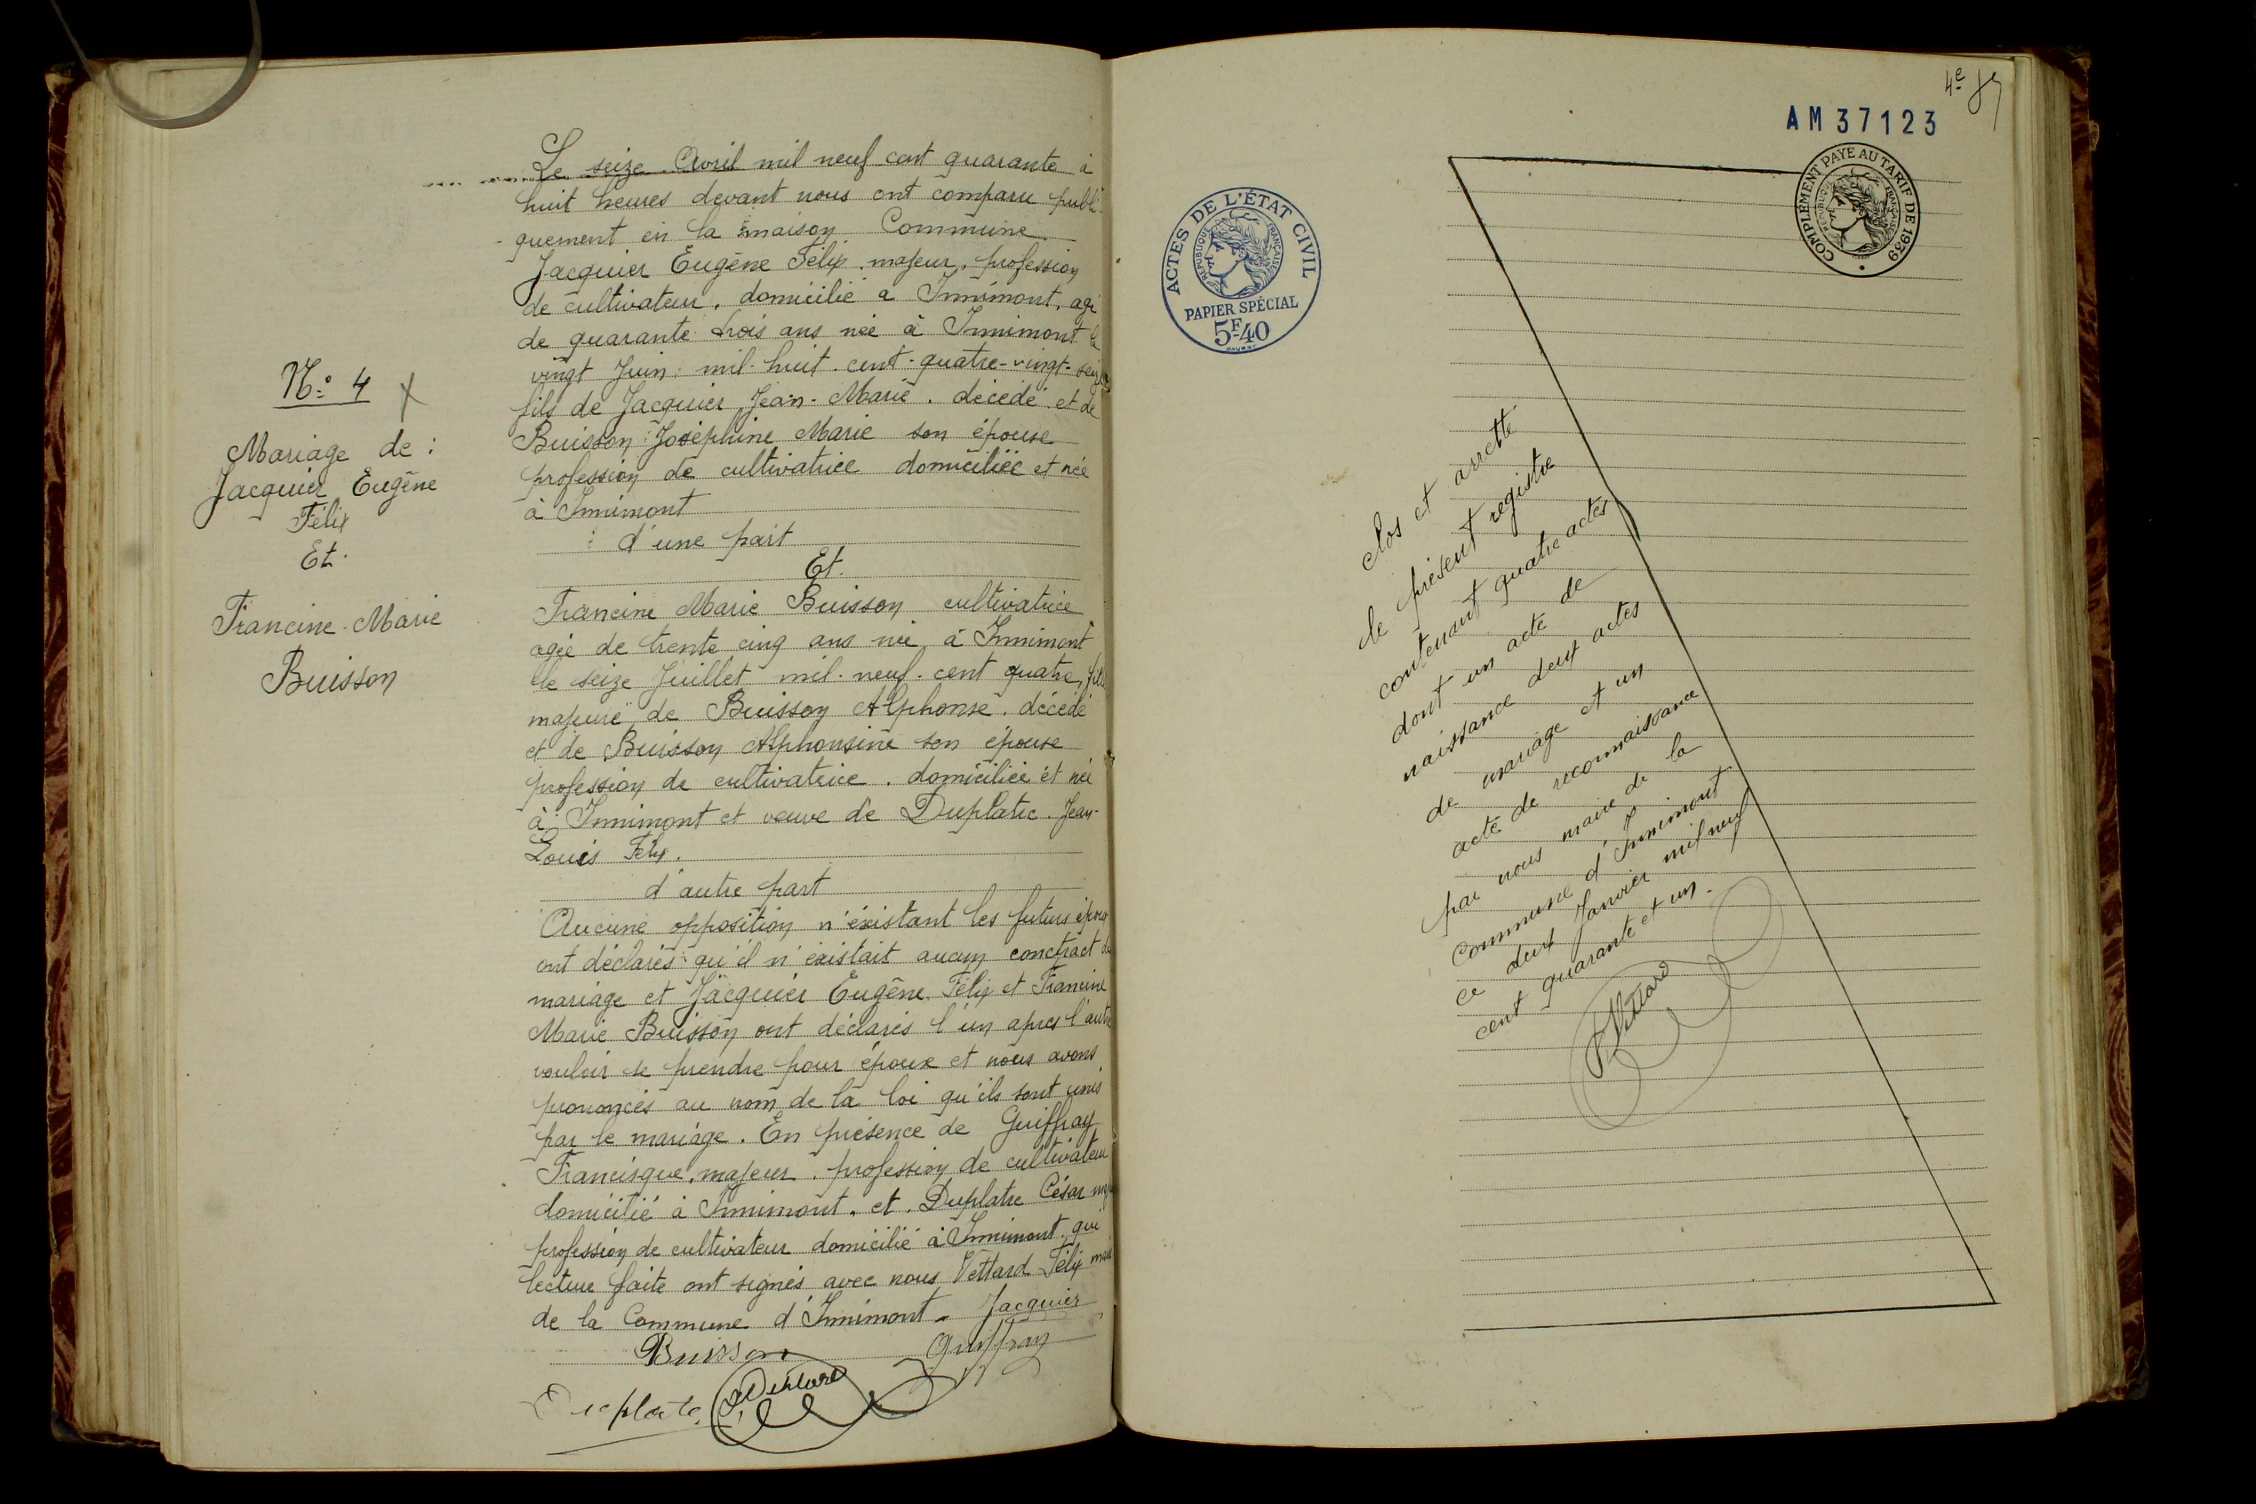 Le seize Avril mil neuf cent quarante à
huit heures devant nous ont comparu publi-
quement en la maison Commune
Jacquier Eugène Félix. majeur. profession
de cultivateur. domicilié a Innimont. agé
de quarante trois ans née à Innimont le
vingt Juin. mil. huit. cent. quatre-vingt-seize
fils de Jacquier Jean-Marie. décédé. et de
Buisson Joséphine Marie son épouse
profession de cultivatrice domiciliée et née
à Innimont
d'une part
Et.
Francine Marie Buisson cultivatrice
agée de trente cinq ans née à Innimont
le seize Juillet mil. neuf. cent quatre, fille
majeure de Buisson Alphonse. décédé
et de Buisson Alphonsine son épouse
profession de cultivatrice. domiciliée et née
à Innimont et veuve de Duplatre. Jean-
Louis Félix.
d'autre part
Aucune opposition n'éxistant les futurs époux
ont déclarés qu'il n'éxistait aucun conctract de
mariage et Jacquier Eugène Félix et Francine
Marie Buisson ont déclarés l'un apres l'autre
vouloir se prendre pour époux et nous avons
prononcés au nom de la loi qu'ils sont unis
par le mariage. En présence de Guiffray
Francisque. majeur. profession de cultivateur
domicilié à Innimont. et. Duplatre César majeur
profession de cultivateur domicilié à Innimont. qui
lecture faite ont signés avec nous Vettard Félix maire
de la Commune d'Innimont. Jacquier
Buisson Guiffray
Duplatre. Vettard
N° 4 X
Mariage de :
Jacquier Eugène
Félix
Et.
Francine-Marie
Buisson
4e
AM37123
COMPLÉMENT PAYÉ AU TARIF DE 1939
RÉPUBLIQUE FRANÇAISE
ACTES DE L'ÉTAT CIVIL
RÉPUBLIQUE FRANÇAISE
PAPIER SPÉCIAL
5F40
clos et arretté
le présent registre
contenant quatre actes
dont un acte de
naissance deux actes
de mariage et un
acte de reconnaissance
par nous maire de la
Commune d'Innimont
ce deux Janvier mil neuf
cent quarante et un.
Vettard